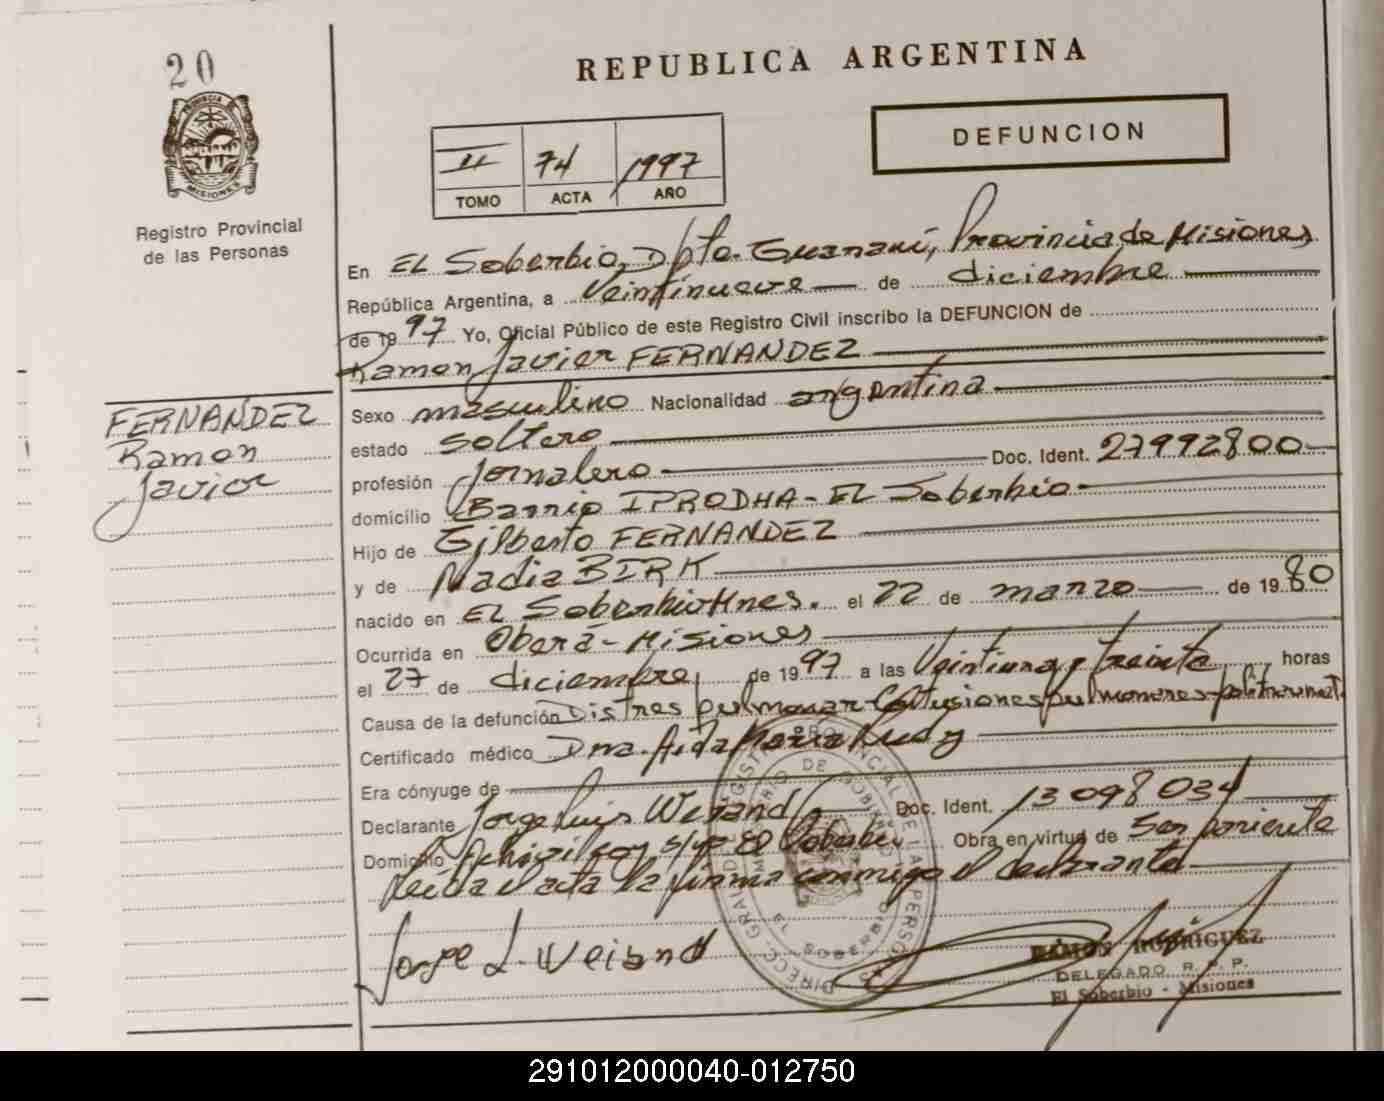 20
REPUBLICA ARGENTINA
PROVINCIA DE
MISIONES
Registro Provincial
de las Personas
II 74 1997
TOMO ACTA AÑO
DEFUNCION
En EL Soberbio, Dpto. Guaraní, Provincia de Misiones
República Argentina, a Veintinueve de diciembre
de 1997 Yo, Oficial Público de este Registro Civil inscribo la DEFUNCION de
Ramon Javier FERNANDEZ
FERNANDEZ
Ramon
Javier
Sexo masculino Nacionalidad argentina
estado soltero
profesión Jornalero Doc. Ident. 27992800
domicilio Barrio IPRODHA - EL Soberbio
Hijo de Gilberto FERNANDEZ
y de Nadia BIRK
nacido en EL Soberbio Mnes. el 22 de marzo de 1980
Ocurrida en Oberá - Misiones
el 27 de diciembre de 1997 a las Veintiuna y treinta horas
Causa de la defunción Distres pulmonar - Contusiones pulmonares - politraumat
Certificado médico Dra. Aida María
Era cónyuge de
Declarante Jorge Luis Weiand Doc. Ident. 13098034
Domicilio s/nº El Soberbio Obra en virtud de Ser pariente
Leída el acta la firma conmigo el declarante
Jorge L. Weiand
RAMON RODRIGUEZ
DELEGADO R. P. P.
El Soberbio - Misiones
DIRECC. GRAL. DEL REGISTRO PROVINCIAL DE LAS PERSONAS
MINISTERIO DE GOBIERNO
EL SOBERBIO
291012000040-012750